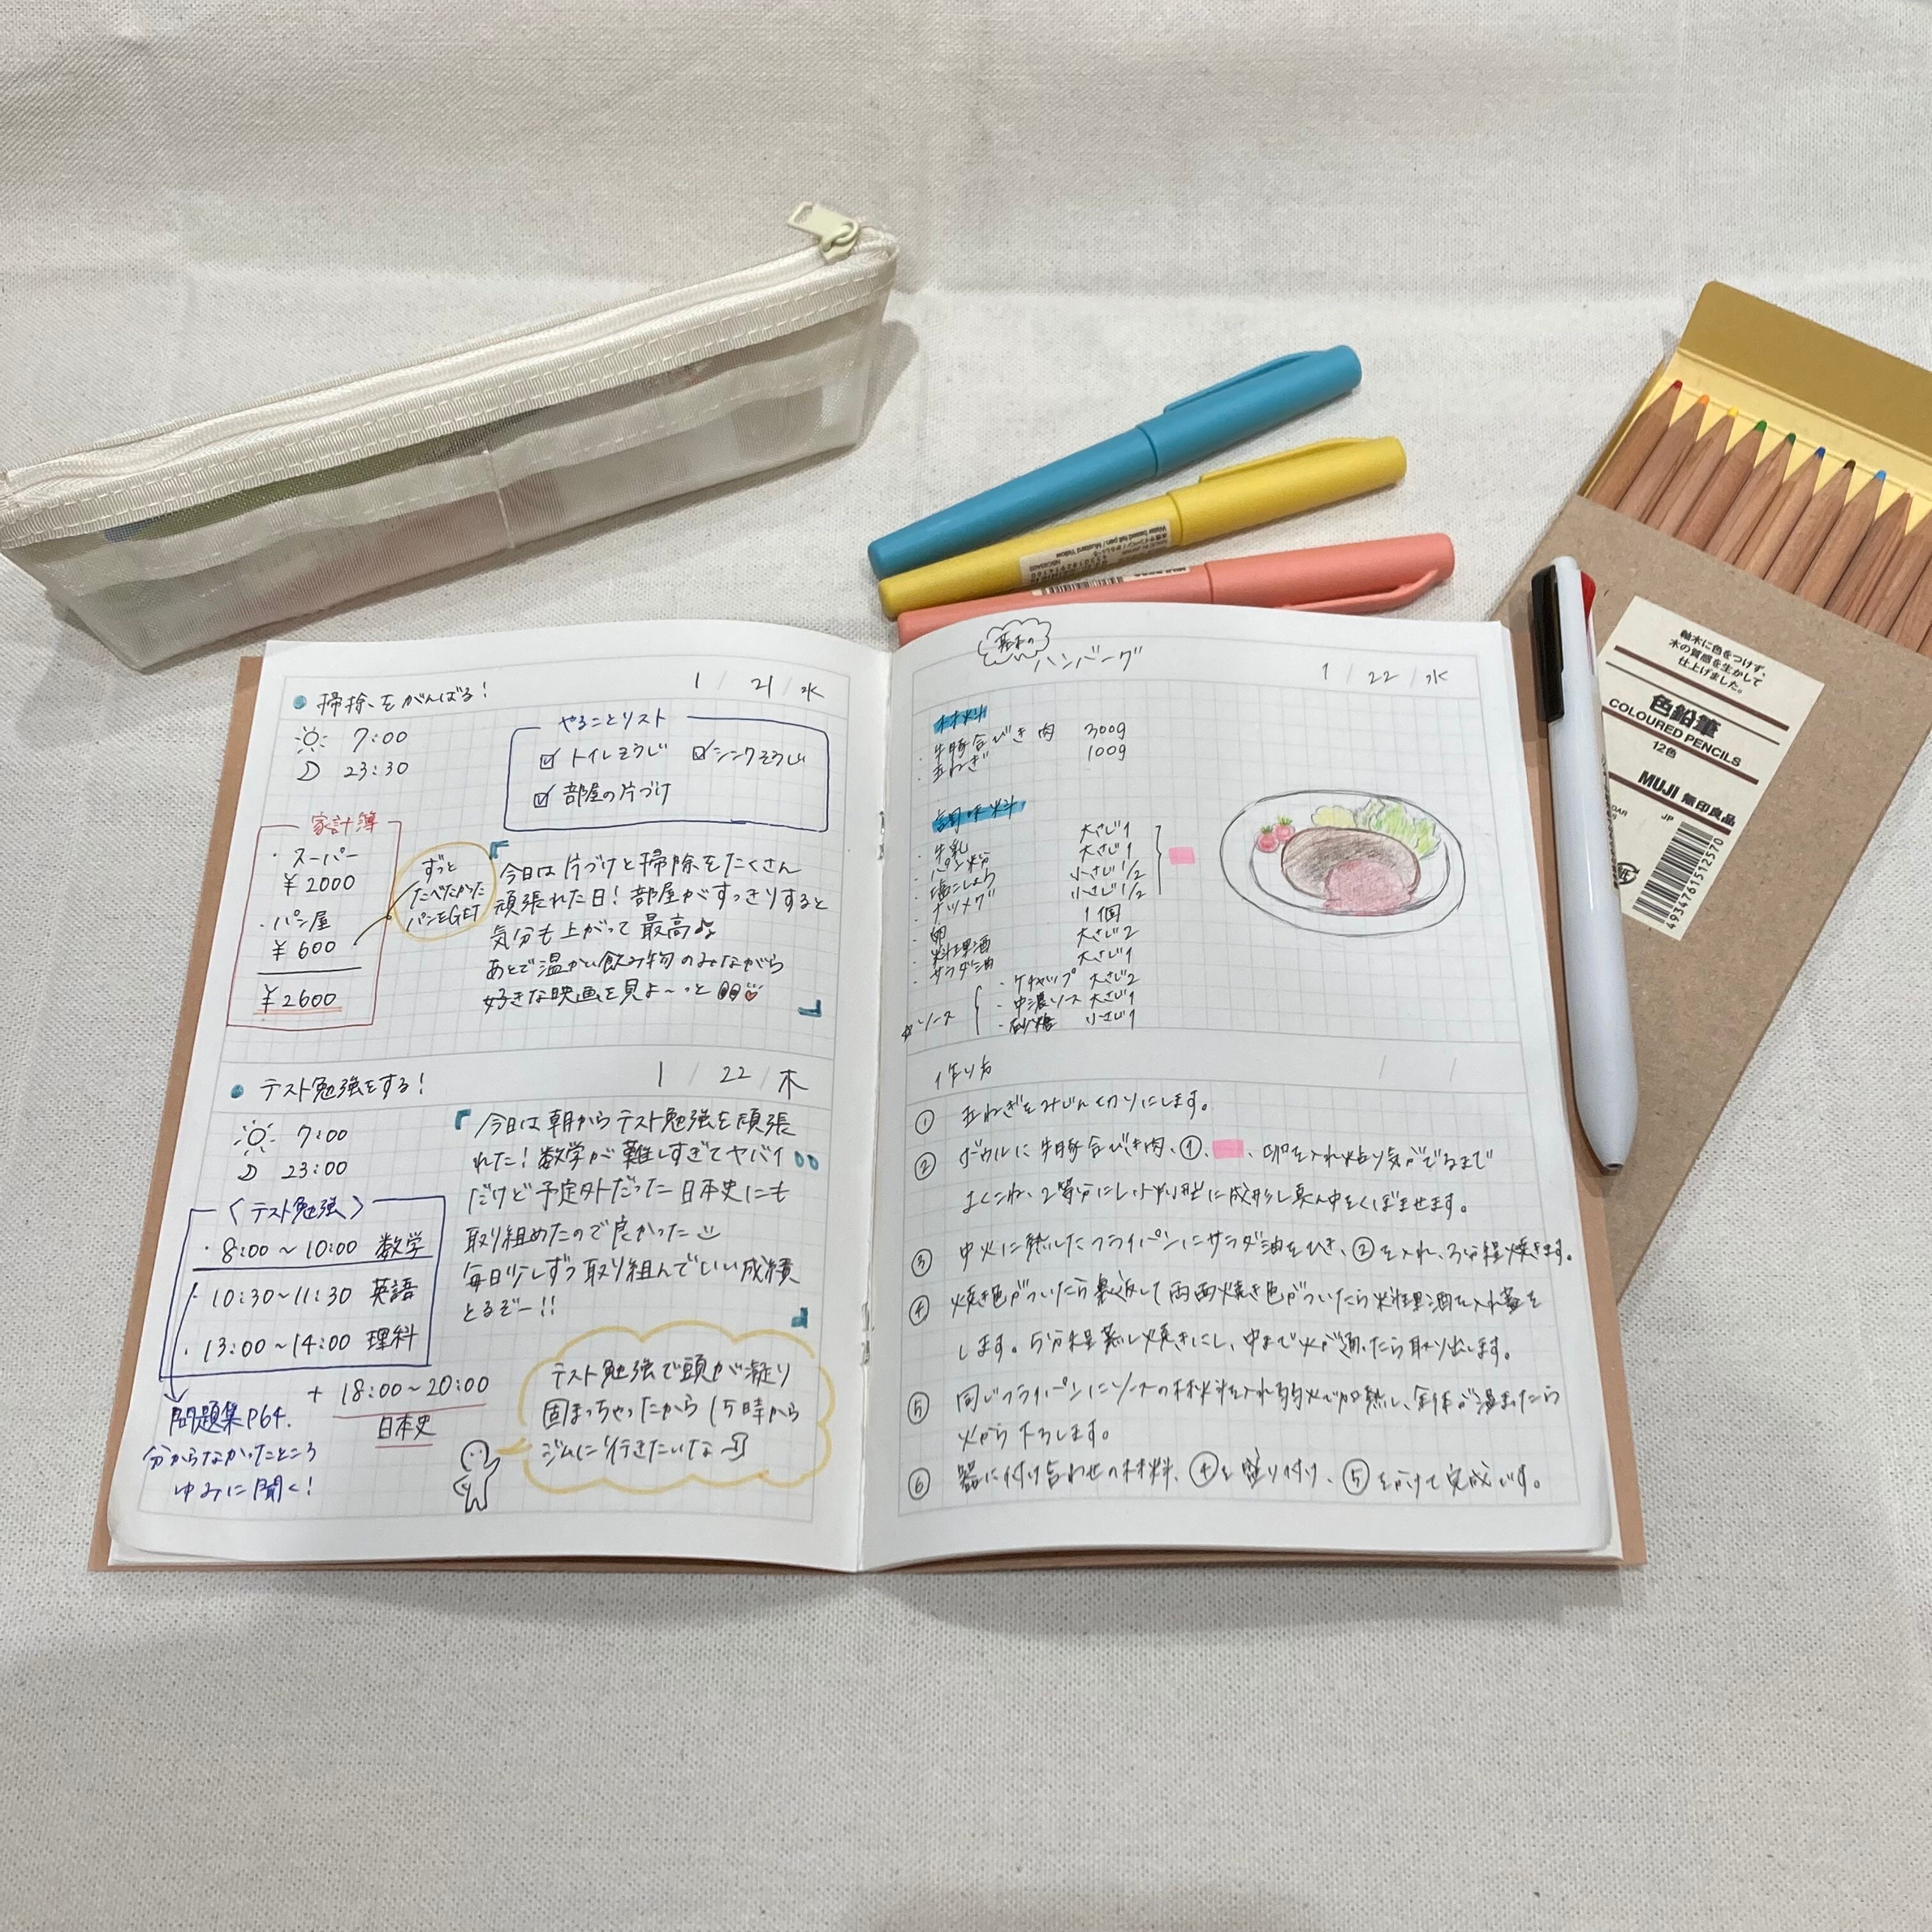 掃除をがんばる!
1 / 21 / 水
7:00
23:30
やることリスト
トイレそうじ
シンクそうじ
部屋の片づけ
家計簿
・スーパー
¥2000
・パン屋
¥600
¥2600
ずっと
たべたかった
パンをGET
「今日は片づけと掃除をたくさん
頑張れた日!部屋がすっきりすると
気分も上がって最高♪
あとで温かい飲み物のみながら
好きな映画を見よ〜っと
」
テスト勉強をする!
1 / 22 / 木
7:00
23:00
〈テスト勉強〉
・8:00〜10:00 数学
・10:30〜11:30 英語
・13:00〜14:00 理科
+ 18:00〜20:00
日本史
問題集P64.
分からなかったところ
ゆみに聞く!
「今日は朝からテスト勉強を頑張
れた!数学が難しすぎてヤバイ
だけど予定外だった日本史にも
取り組めたので良かった
毎日少しずつ取り組んでいい成績
とるぞー!!
」
テスト勉強で頭が凝り
固まっちゃったから15時から
ジムに行きたいな
基本の
ハンバーグ
1 / 22 / 水
材料
・牛豚合びき肉 300g
・玉ねぎ 100g
調味料
・牛乳 大さじ1
・パン粉 大さじ1
・塩こしょう 小さじ1/2
・ナツメグ 小さじ1/2
・卵 1個
・料理酒 大さじ2
・サラダ油 大さじ1
☆ソース
・ケチャップ 大さじ2
・中濃ソース 大さじ1
・砂糖 小さじ1
作り方
/ /
① 玉ねぎをみじん切りにします。
② ボウルに牛豚合びき肉、①、、卵を入れ粘り気がでるまで
よくこね、2等分にし小判型に成形し真ん中をくぼませます。
③ 中火に熱したフライパンにサラダ油をひき、②を入れ、3分程焼きます。
④ 焼き色がついたら裏返して両面焼き色がついたら料理酒を入れ蓋を
します。5分程蒸し焼きにし、中まで火が通ったら取り出します。
⑤ 同じフライパンにソースの材料を入れ弱火で加熱し、全体が温まったら
火から下ろします。
⑥ 器に付け合わせの材料、④を盛り付け、⑤をかけて完成です。
軸木に色をつけず、
木の質感を生かして
仕上げました。
色鉛筆
COLOURED PENCILS
12色
MUJI 無印良品
JP
4934761512570
Water based felt pen / Mustard Yellow